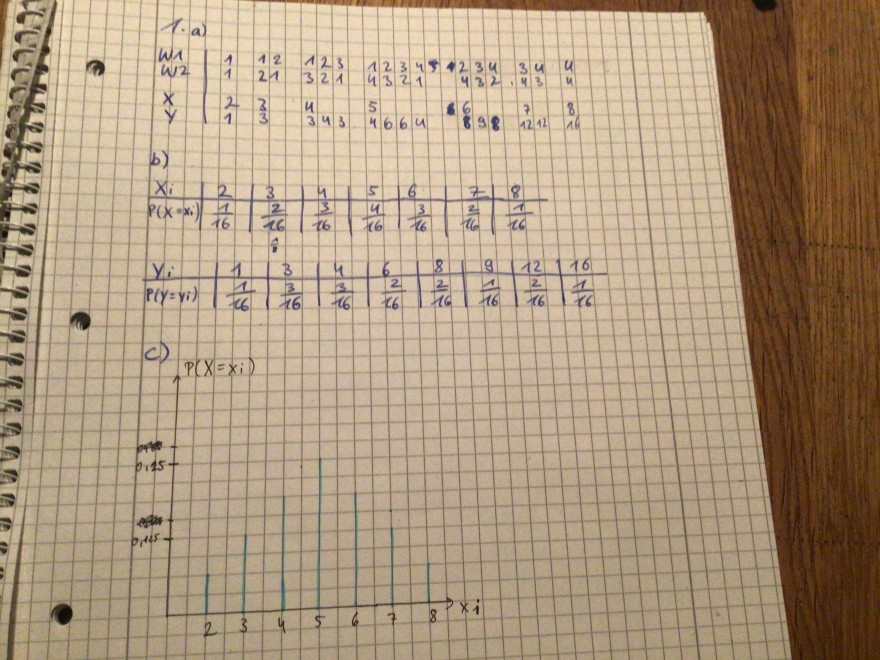 1. a)
W1 | 1 | 1 2 | 1 2 3 | 1 2 3 4 | 2 3 4 | 3 4 | 4
W2 | 1 | 2 1 | 3 2 1 | 4 3 2 1 | 4 3 2 | 4 3 | 4
X | 2 | 3 | 4 | 5 | 6 | 7 | 8
Y | 1 | 3 | 3 4 3 | 4 6 6 4 | 8 9 8 | 12 12 | 16
b)
Xi | 2 | 3 | 4 | 5 | 6 | 7 | 8
P(X=xi) | 1/16 | 2/16 | 3/16 | 4/16 | 3/16 | 2/16 | 1/16
Yi | 1 | 3 | 4 | 6 | 8 | 9 | 12 | 16
P(Y=yi) | 1/16 | 3/16 | 3/16 | 2/16 | 2/16 | 1/16 | 2/16 | 1/16
c)
P(X=xi)
0,25
0,125
2 3 4 5 6 7 8 xi